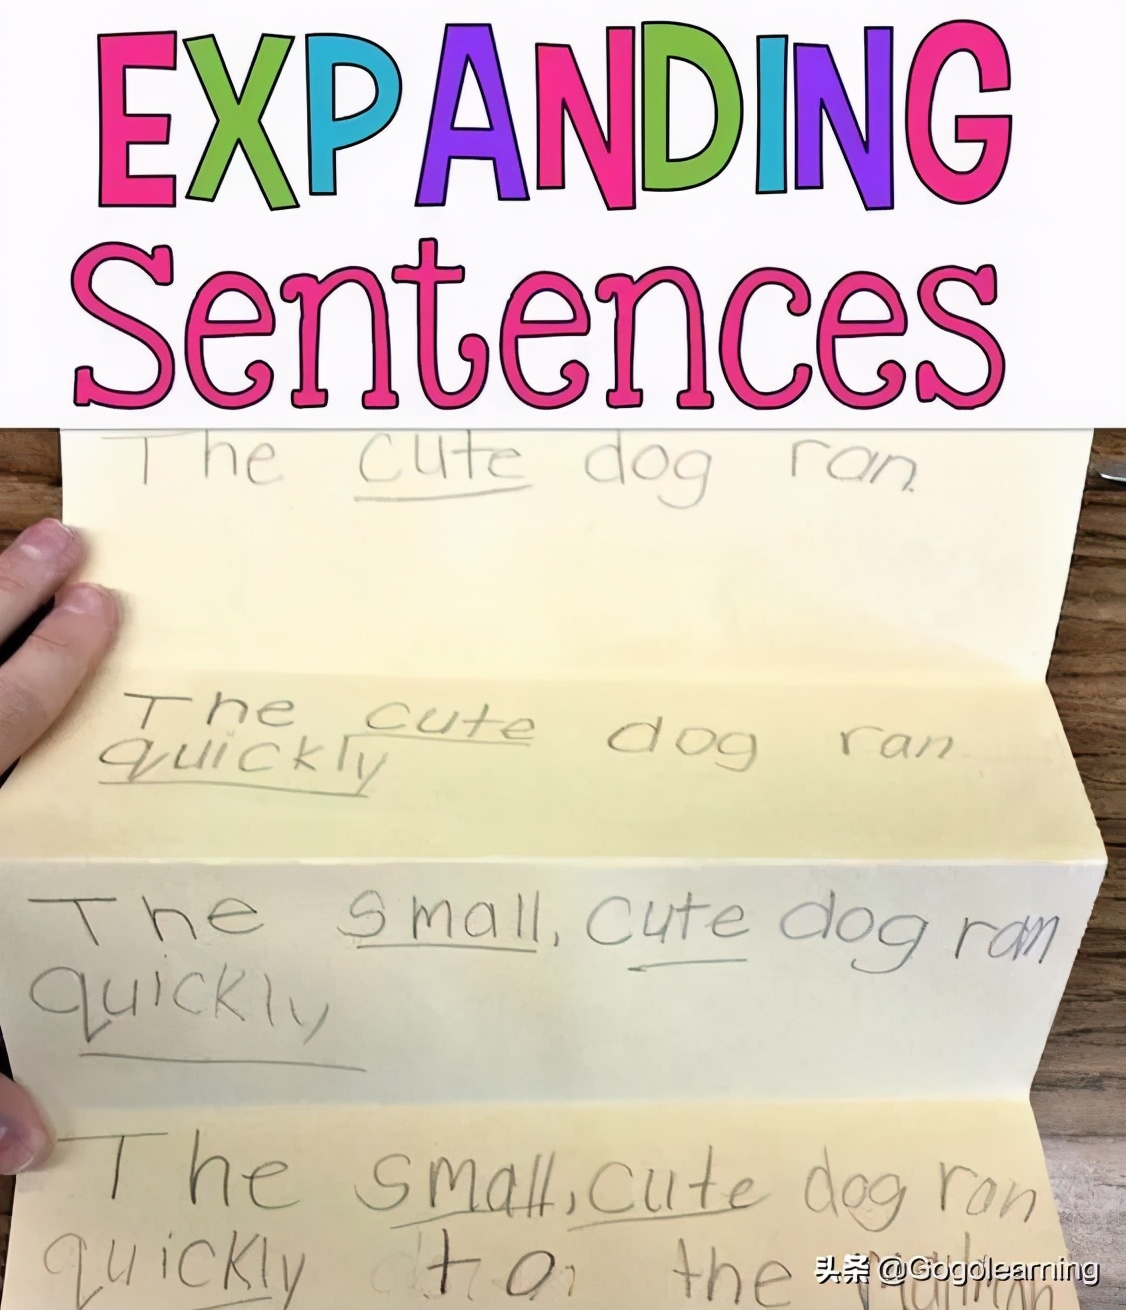 EXPANDING
Sentences
The cute dog ran.
The cute dog ran
quickly
The small, cute dog ran
quickly
The small, cute dog ran
quickly to the
头条 @Gogolearning